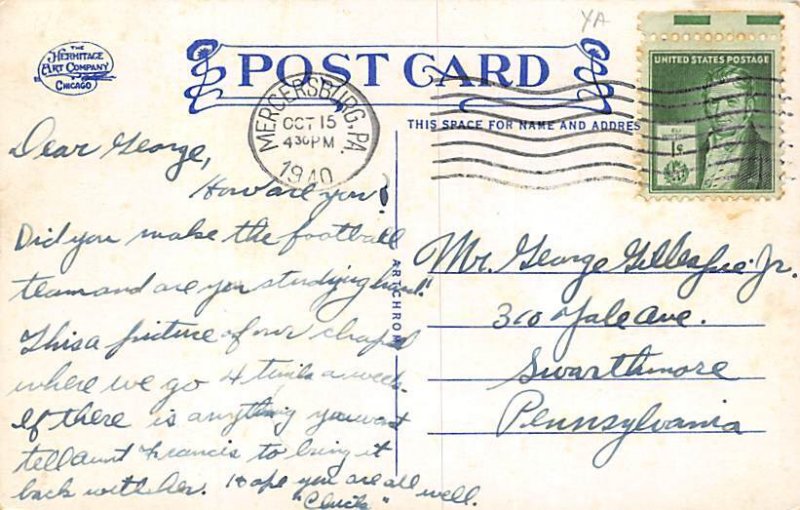 YA
THE
HERMITAGE
ART COMPANY
CHICAGO
POST CARD
MERCERSBURG, PA.
OCT 15
4 30 PM
1940
UNITED STATES POSTAGE
1¢
THIS SPACE FOR NAME AND ADDRES
ARTCHROM
Dear George,
How are you?
Did you make the football
team and are you studying hard?
This a picture of our chapel
where we go 4 times a week.
If there is anything you want
tell aunt Francis to bring it
back with her. Hope you are all well.
"Chuck"
Mr. George Gillespie Jr.
310 Yale Ave.
Swarthmore
Pennsylvania